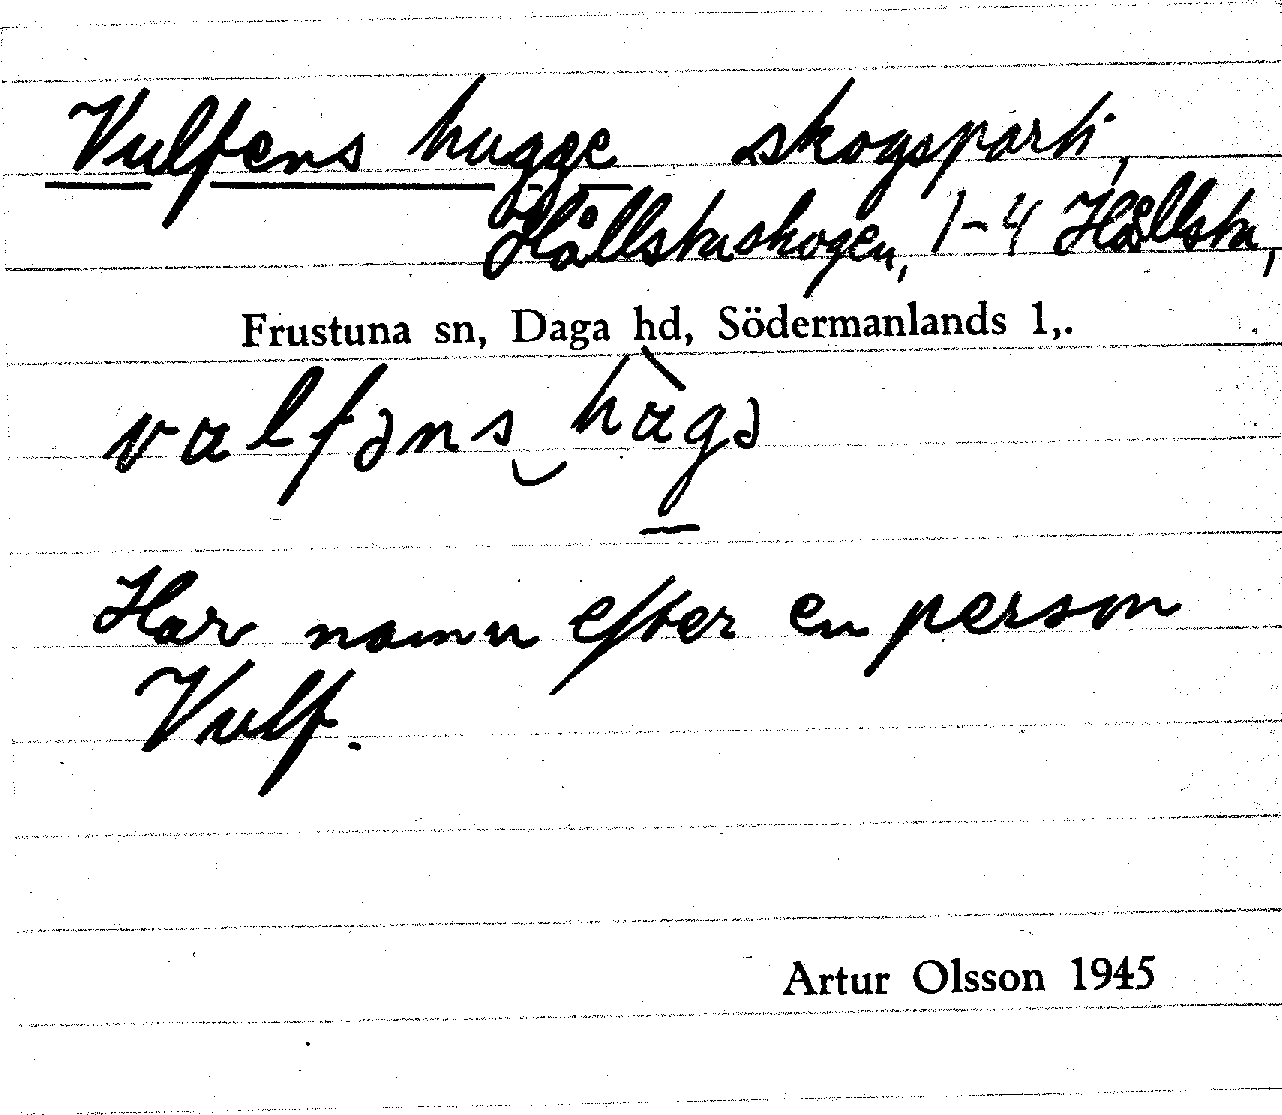 Vulfens hugge skogsparti,
Hållstaskogen, 1-4 Hållsta,
Frustuna sn, Daga hd, Södermanlands l,.
valfəns hàgə
Har namn efter en person
Vulf.
Artur Olsson 1945